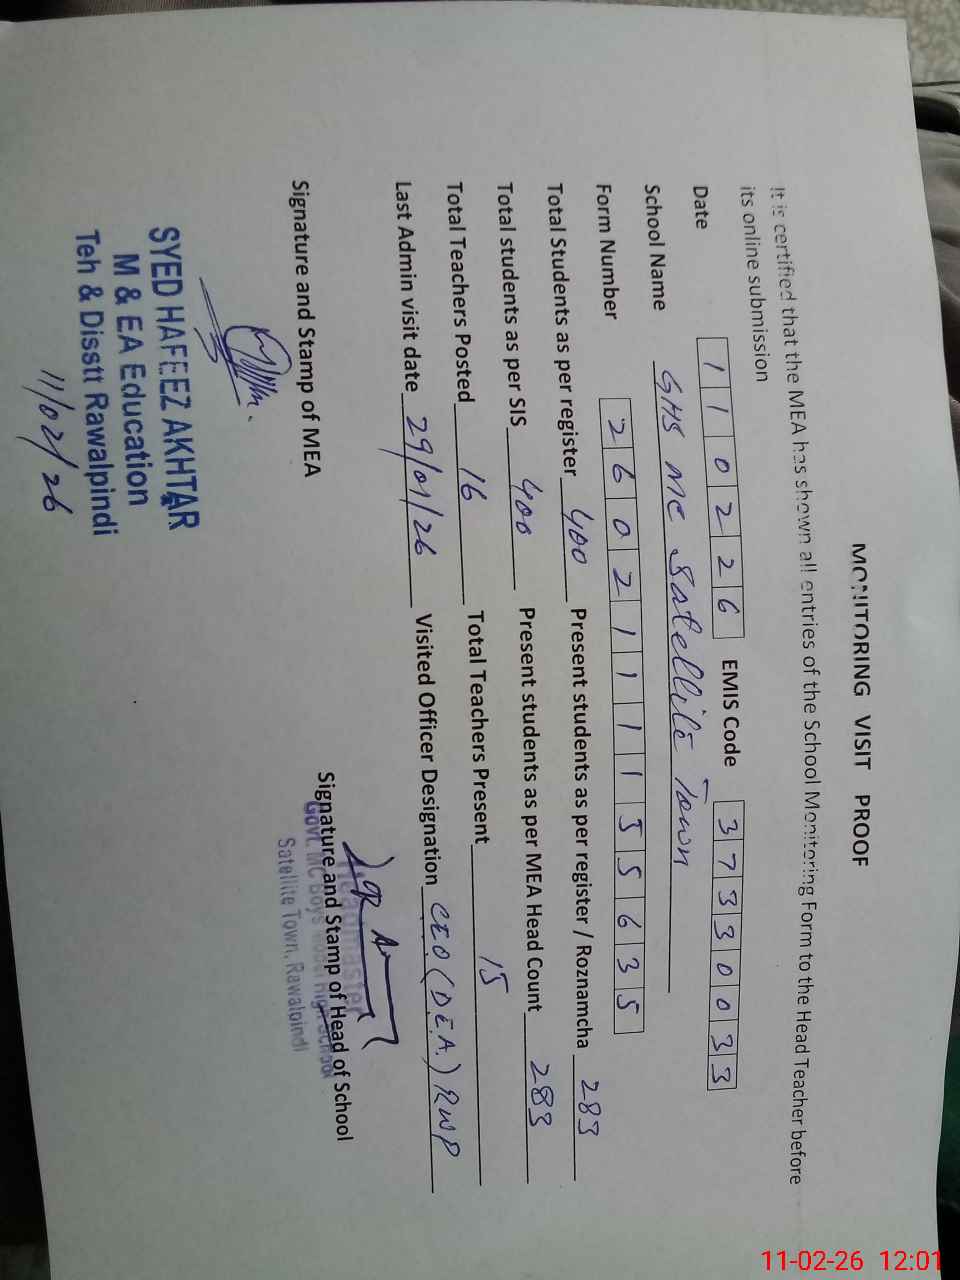 MONITORING VISIT PROOF
It is certified that the MEA has shown all entries of the School Monitoring Form to the Head Teacher before
its online submission
Date 110226 EMIS Code 37330033
School Name GHS MC Satellite Town
Form Number 2602111155635
Total Students as per register 400 Present students as per register / Roznamcha 283
Total students as per SIS 400 Present students as per MEA Head Count 283
Total Teachers Posted 16 Total Teachers Present 15
Last Admin visit date 29/01/26 Visited Officer Designation CEO (D.E.A.) RWP
Signature and Stamp of MEA Signature and Stamp of Head of School
Headmaster
Govt. MC Boys High School
Satellite Town, Rawalpindi
SYED HAFEEZ AKHTAR
M & EA Education
Teh & Disstt Rawalpindi
11/02/26
11-02-26 12:01